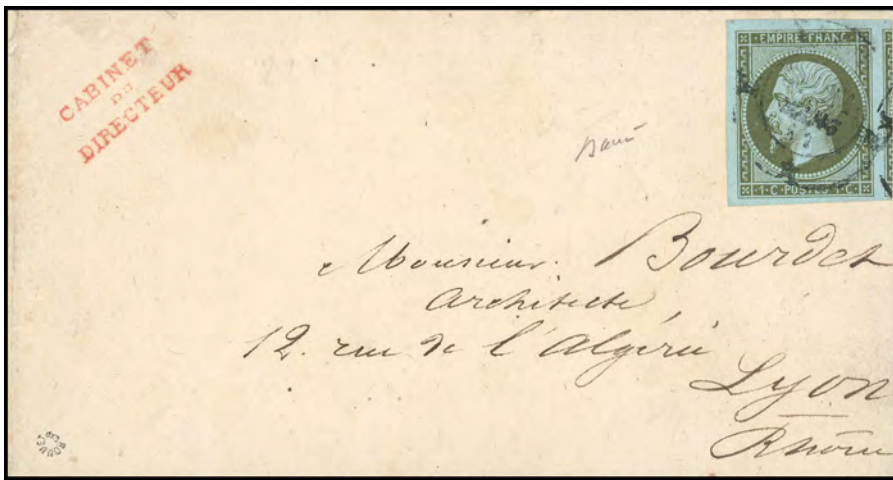 CABINET
DU
DIRECTEUR
EMPIRE FRANC
1 C POSTES 1 C
Monsieur Bourdet
Architecte,
12. rue de l'Algérie
Lyon
Rhône